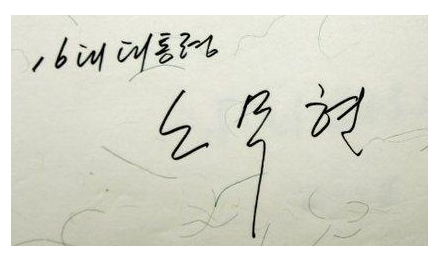 16대 대통령
노무현